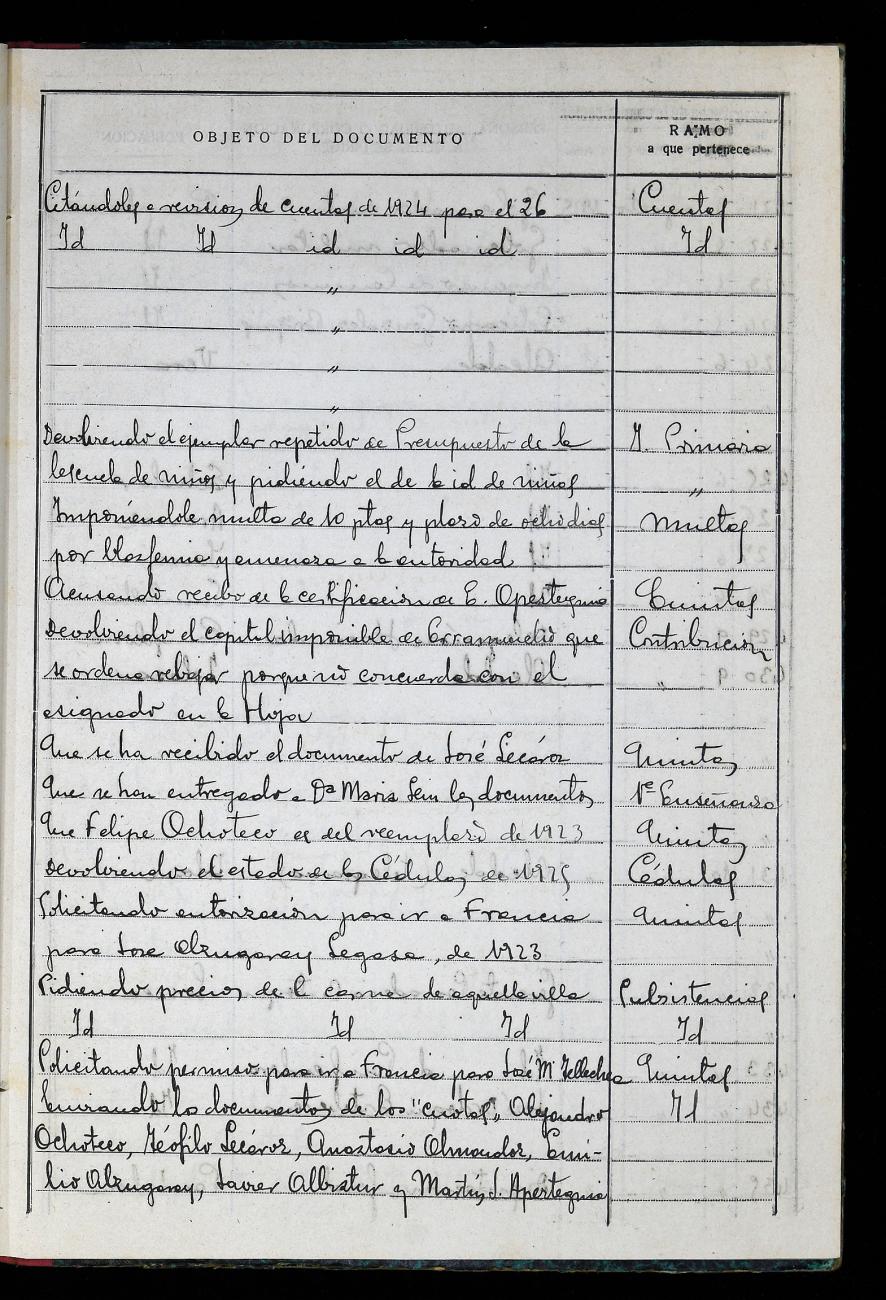 OBJETO DEL DOCUMENTO
RAMO
a que pertenece
Citándoles a revision de cuentas de 1924 para el 26 Cuentas
Id Id id id id Id
"
"
"
"
Devolviendo el ejemplar repetido de Presupuesto de la I. Primaria
escuela de niños y pidiendo el de la id de niñas "
Imponiéndole multa de 10 ptas y plazo de ocho dias Multas
por blasfemia y amenaza a la autoridad
Acusando recibo de la certificacion de E. Apesteguia Quintas
Devolviendo el capital imponible de Erramuelio que Contribucion
se ordena rebajar porque no concuerda con el "
asignado en la Hoja
Que se ha recibido el documento de José Lecároz Quintas
Que se han entregado a Dª Maria los documentos 1ª Enseñanza
Que Felipe Ochoteco es del reemplazo de 1923 Quintas
Devolviendo el estado de las Cédulas de 1925 Cédulas
Solicitando autorización para ir a Francia Quintas
para Jose Alzugaray Legasa, de 1923
Pidiendo precios de la carne de aquella villa Subsistencias
Id Id Id Id
Solicitando permiso para ir a Francia para José Mª Tellechea Quintas
Enviando los documentos de los "cuotas", Alejandro Id
Ochoteco, Teófilo Lecároz, Anastasio Almandoz, Emi-
lio Alzugaray, Javier Albistur y Martin J. Apesteguia